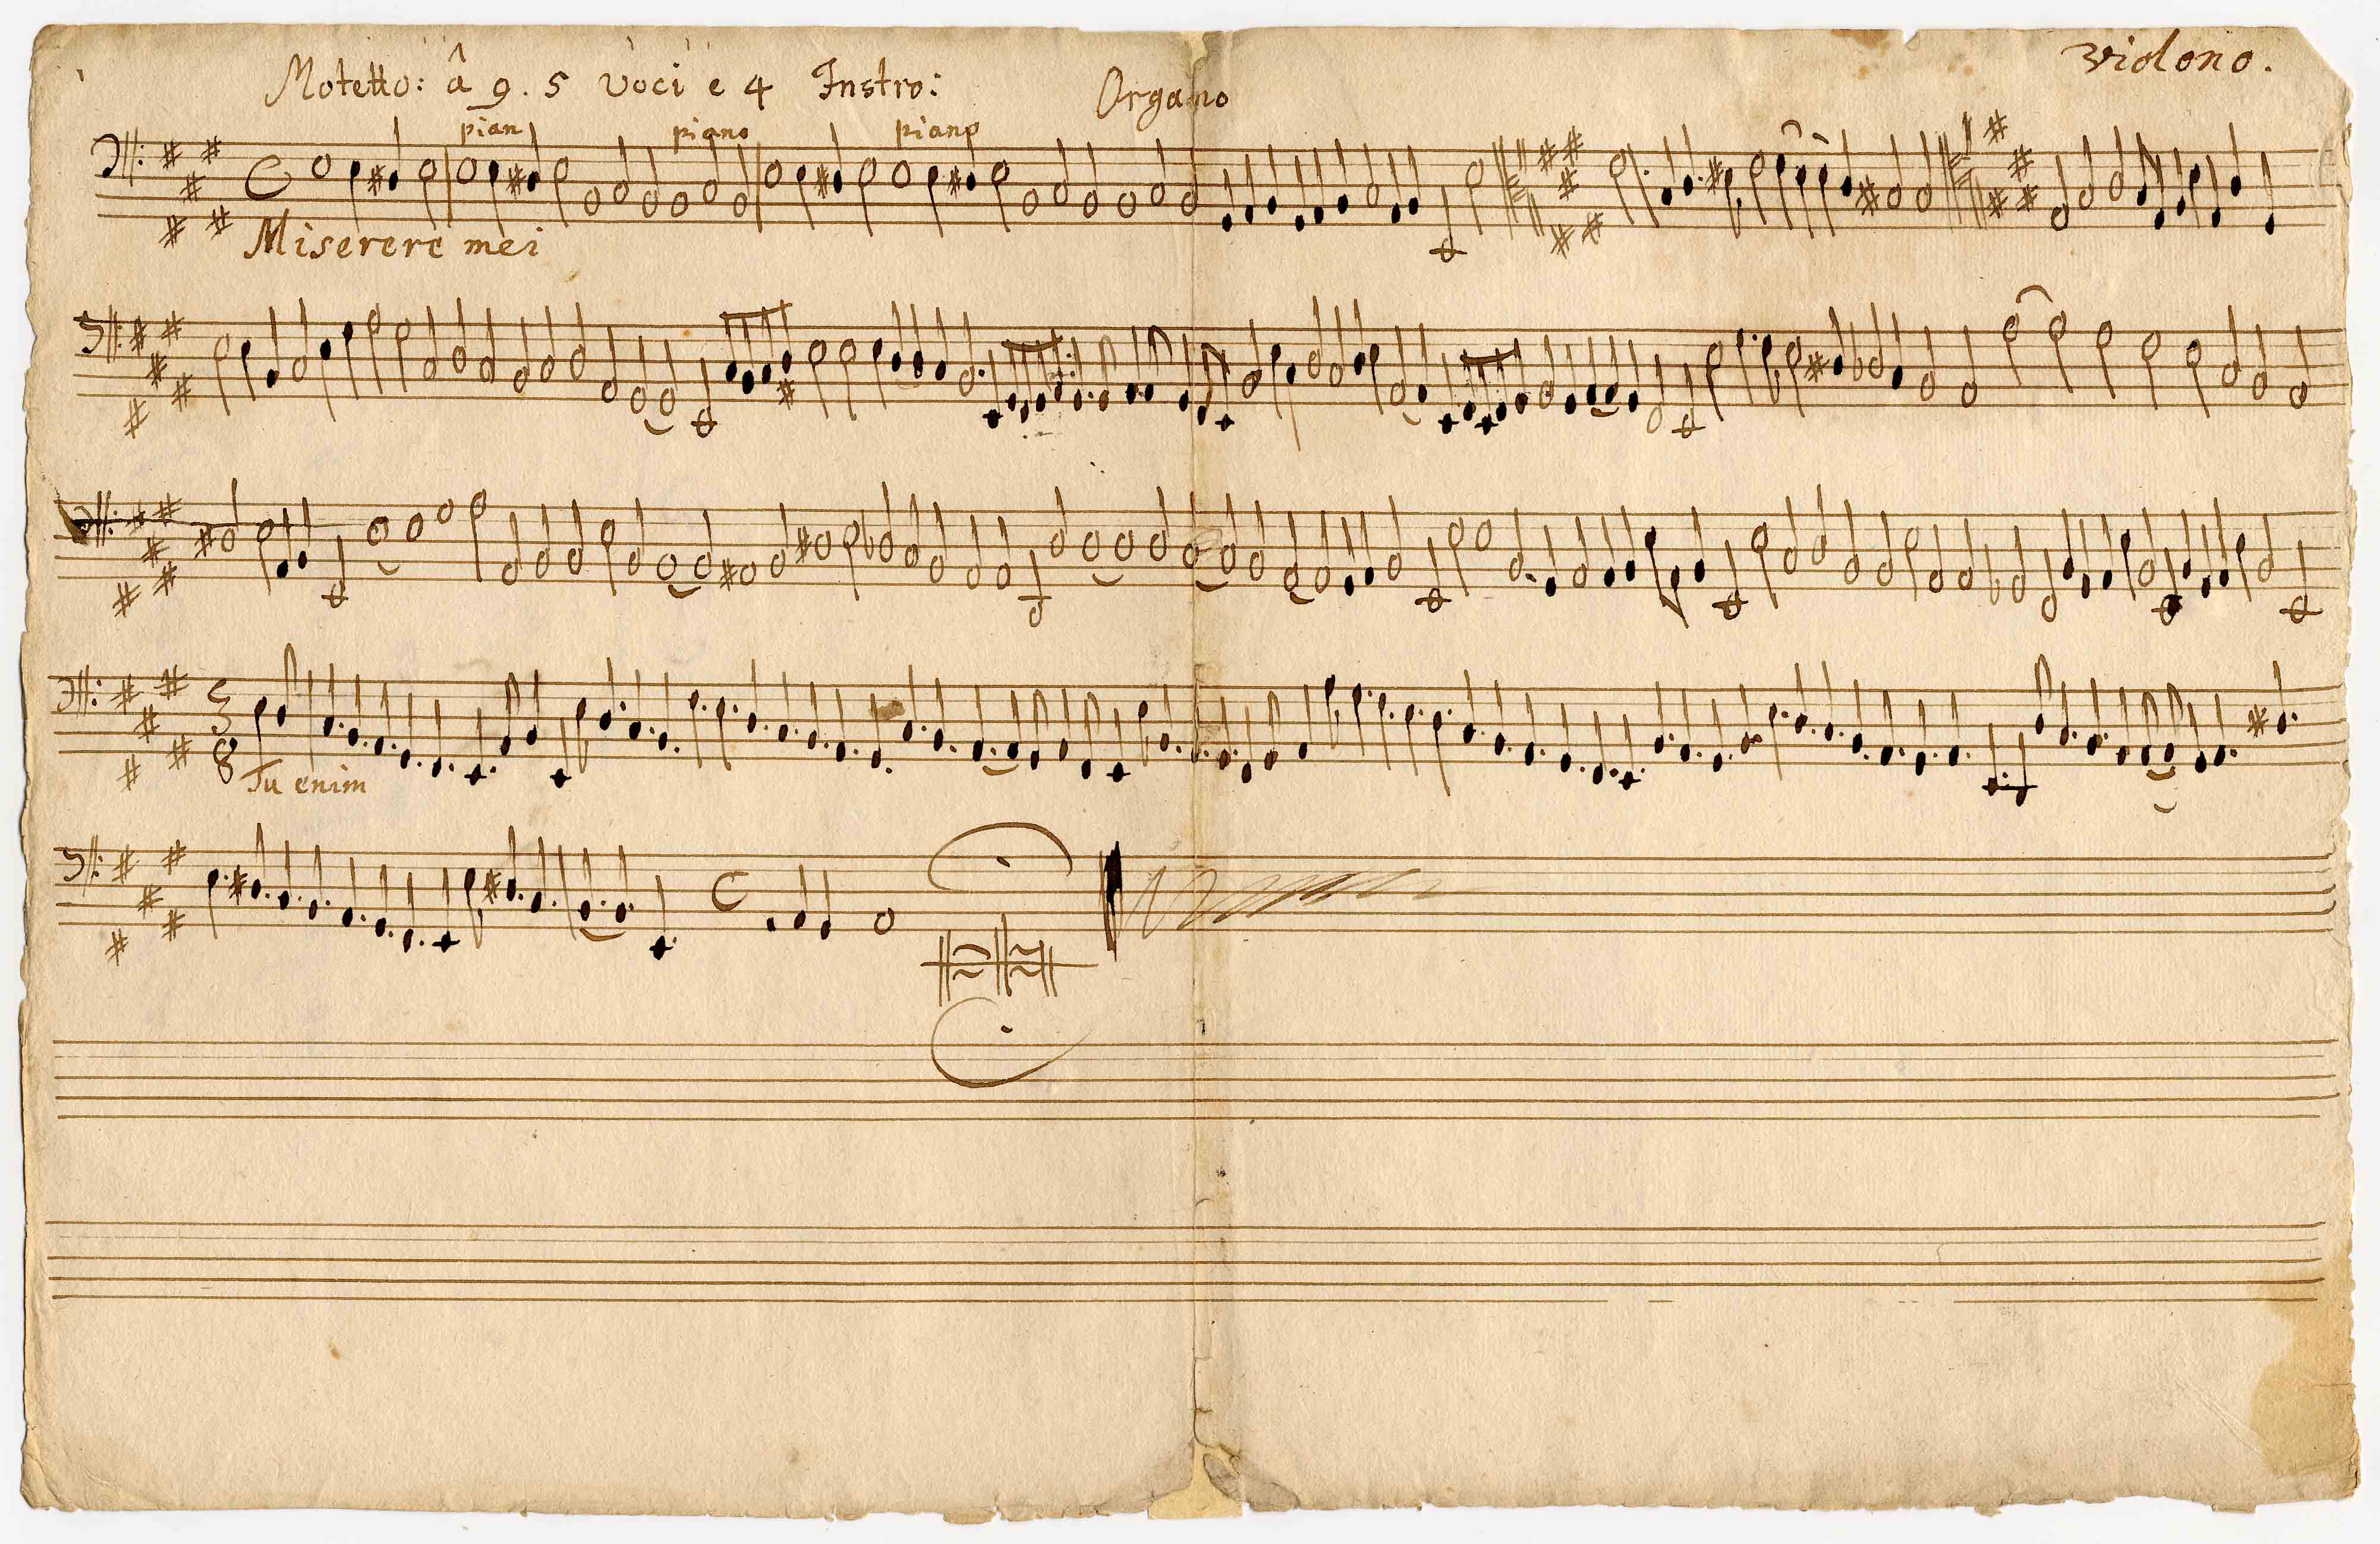 Motetto: â 9. 5 Voci e 4 Instro: Organo violono.
pian piano piano
Miserere mei
Tu enim